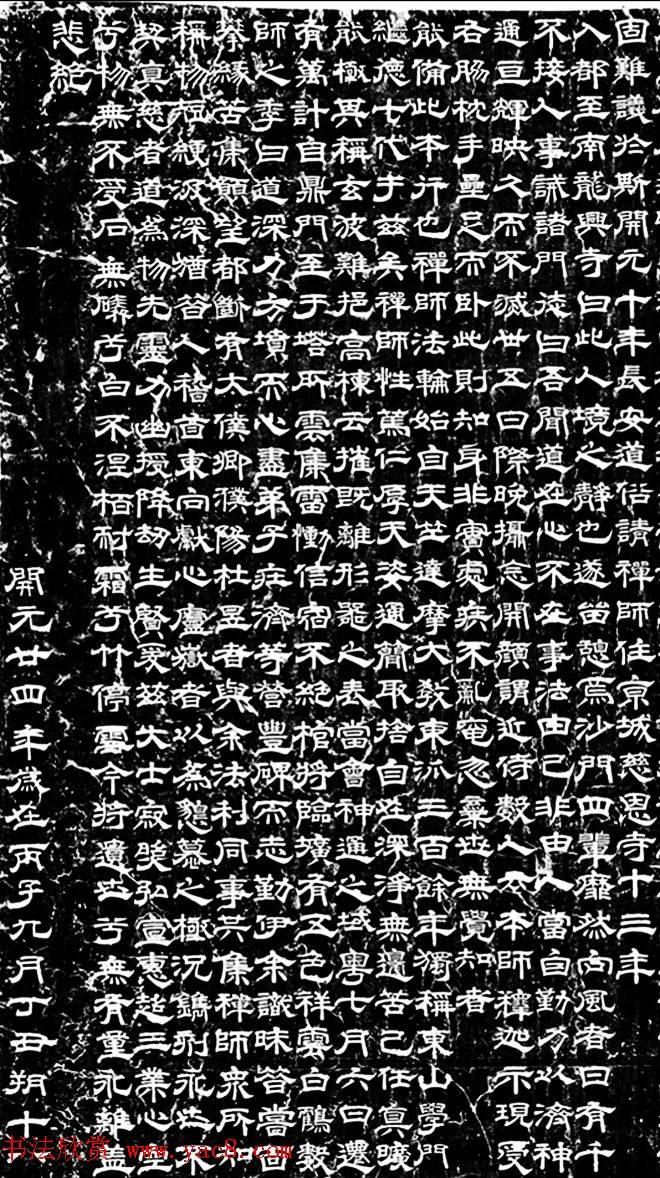 固難議於斯開元十年長安道俗請禪師住京城慈恩寺十三年
入都至南龍興寺曰此人境之靜也遂留憩焉沙門四輩靡然向風者日有千
不接人事誡諸門徒曰吾聞道在心不在事法由己非由人當自勤力以濟神
通亘輝映久而不滅廿五日際晚攝念開顏謂近侍數人曰本師釋迦示現受
右脇枕手壘足而臥此則知身非實處疾不亂奄忽棄世無覺知者
能備此本行也禪師法輪始自天竺達摩大教東派三百餘年獨稱東山學門
繼德七代于茲矣禪師性篤仁厚天姿通簡取捨自在深淨無邊苦己任真曠
能極其稱玄波難挹高棟云摧既離形器之表當會神通之域粵七月六日遷
有萬計自鼎門至于塔所雲集雷慟信宿不絕棺將臨壙有五色祥雲白鶴數
師之季曰道深力方墳而心盡弟子莊濟等營豐碑而志勤伊余識昧昔嘗面
攀緣苦集願望都斷有太僕卿濮陽杜昱者與余法利同事共集禪師眾所
稱物短綆汲深猶昔人稽首東向獻心廬嶽者以為懇慕之極況鐫刻永世不
契真慈者道為物先靈力幽授降劫生賢爰茲大士寂照弘宣惠超三業心空
兮物無不受石無磷兮白不涅栢耐霜兮竹停雪今將遺世兮無有量永離蓋
悲絕
開元廿四年歲在丙子九月丁丑朔十
书法欣赏 www.yac8.com